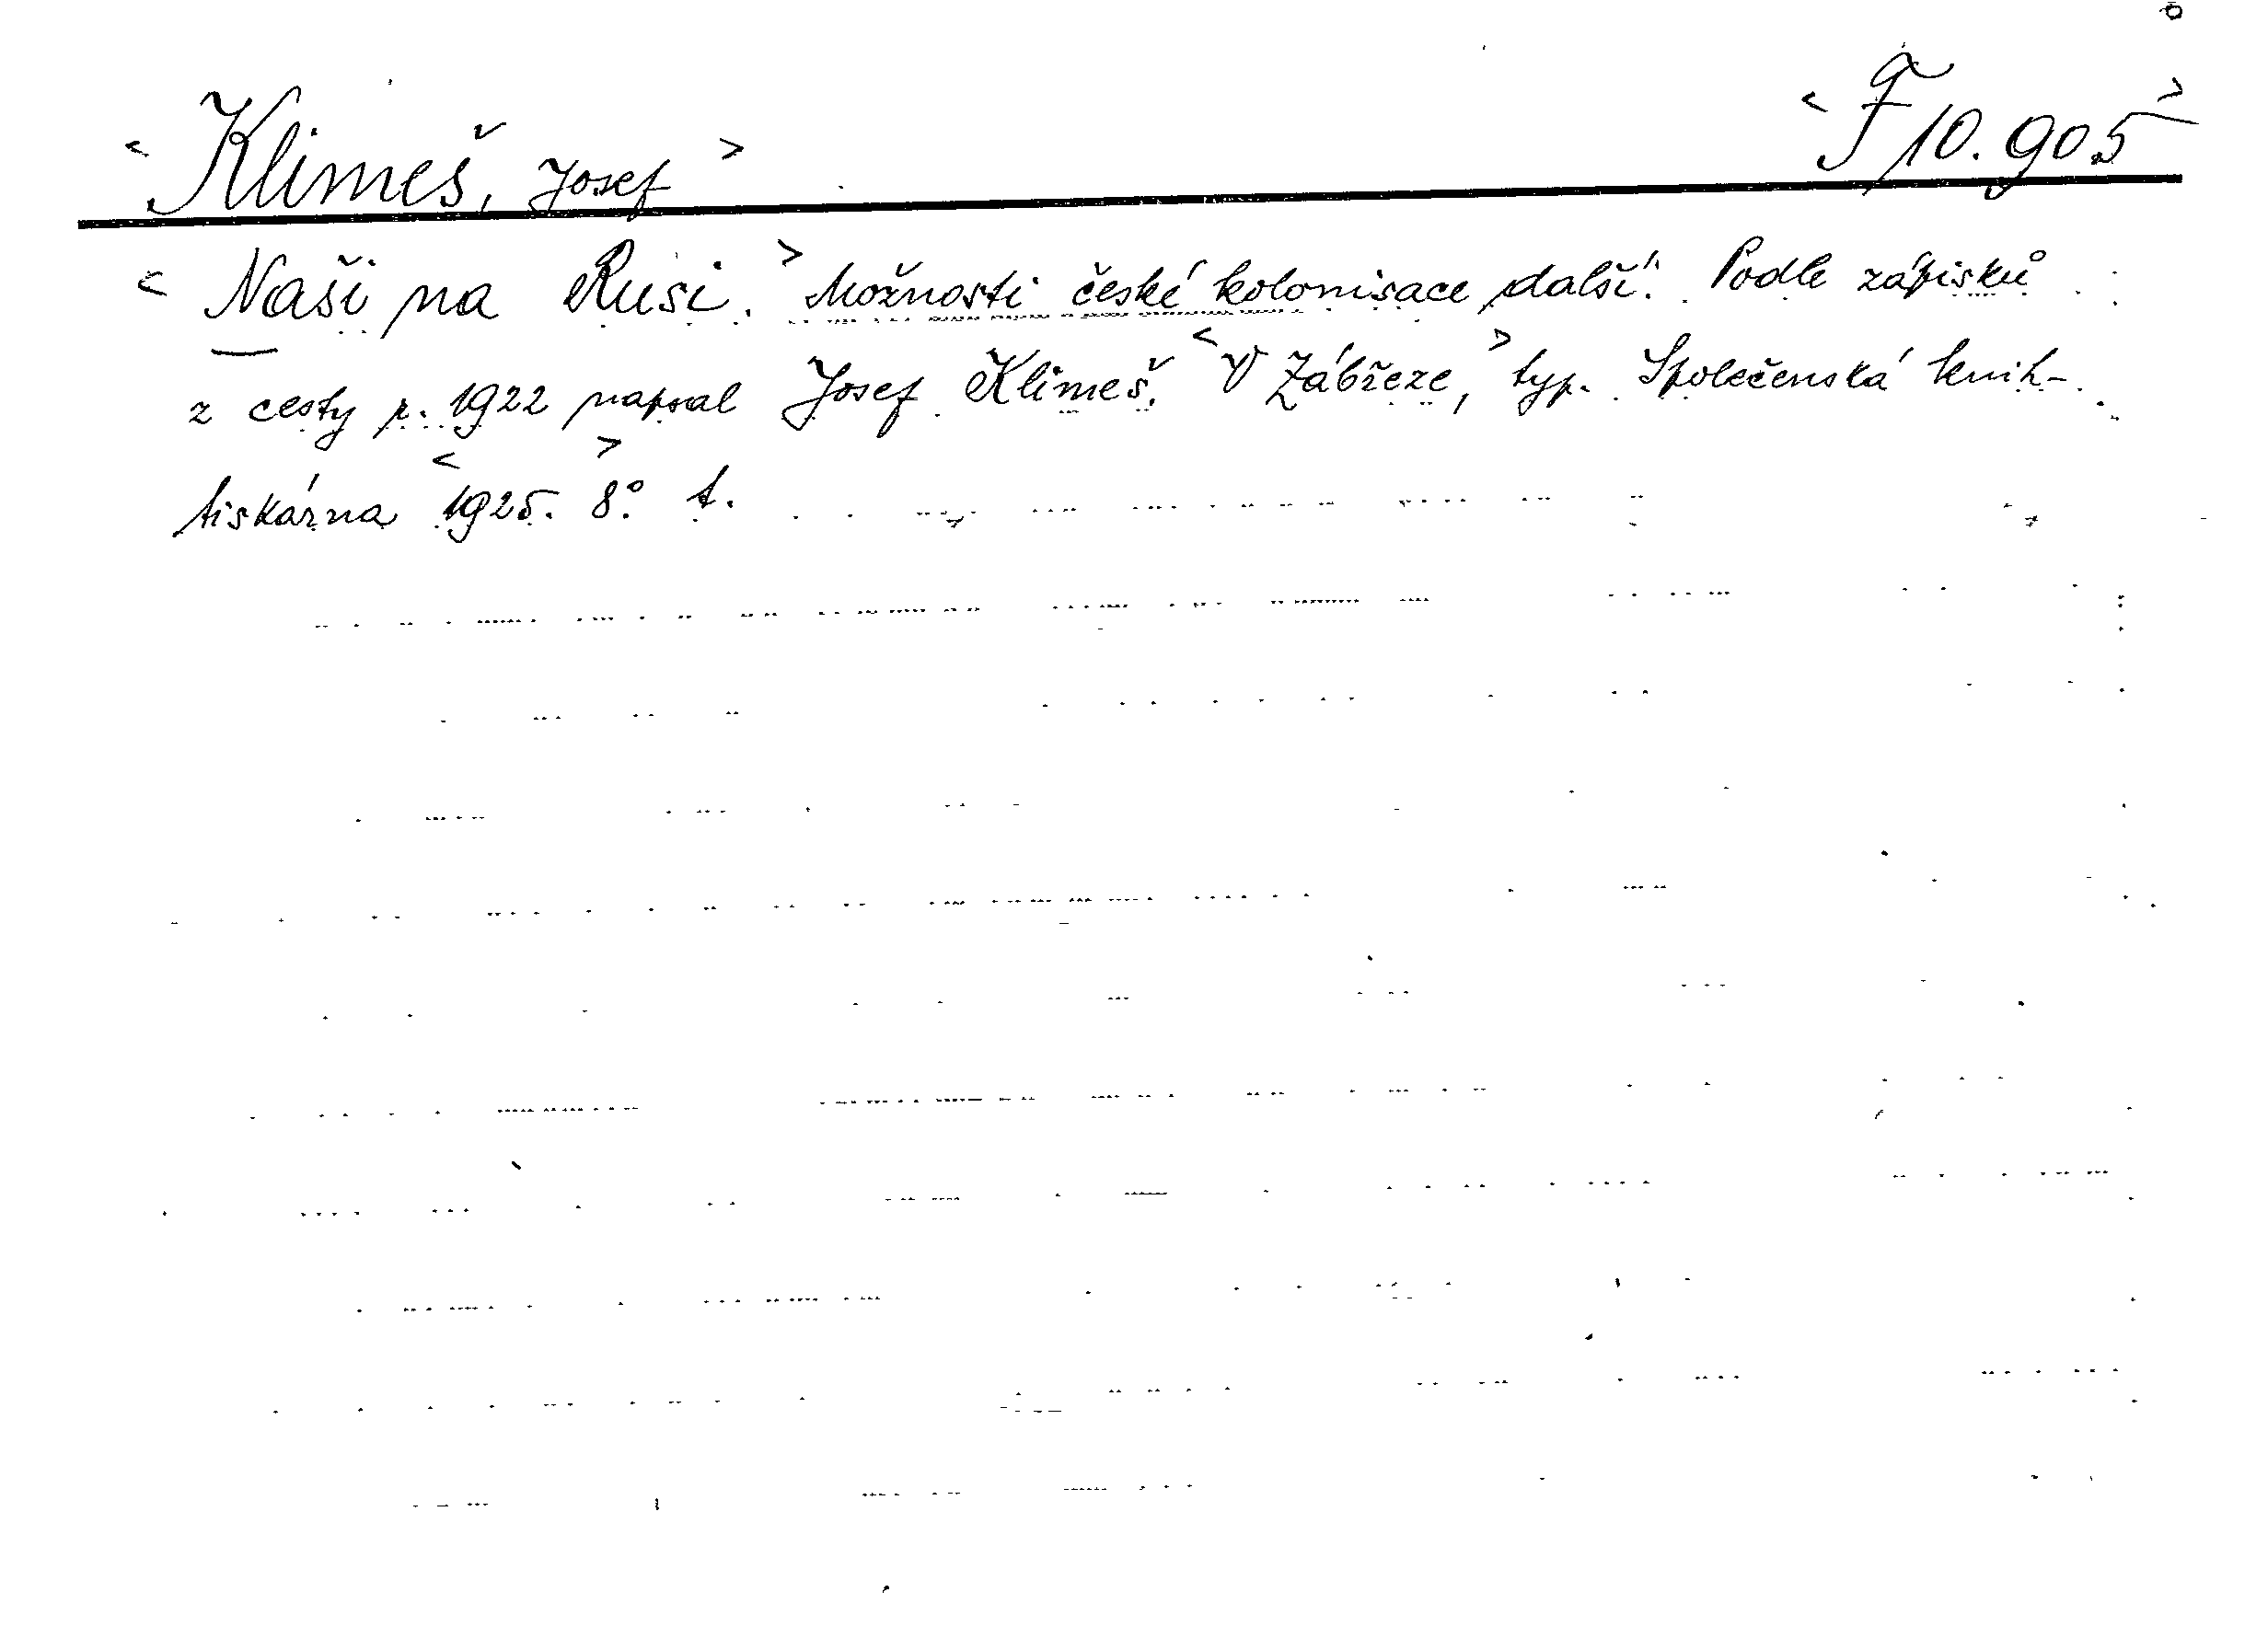 < Klimeš, Josef > < F 10.905 >
< Naši na Rusi. > Možnosti české kolonisace další. Podle zápisků
z cesty r. 1922 napsal Josef Klimeš. < V Zábřeze, > typ. Společenská knih-
tiskárna < 1925. 8°. > t.